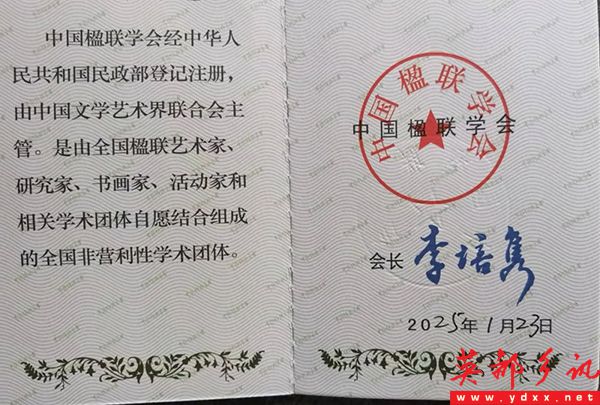 中国楹联学会经中华人
民共和国民政部登记注册，
由中国文学艺术界联合会主
管。是由全国楹联艺术家、
研究家、书画家、活动家和
相关学术团体自愿结合组成
的全国非营利性学术团体。
中国楹联学会
中国楹联学会
会长 李培隽
2025年1月23日
英都乡讯
www.ydxx.net